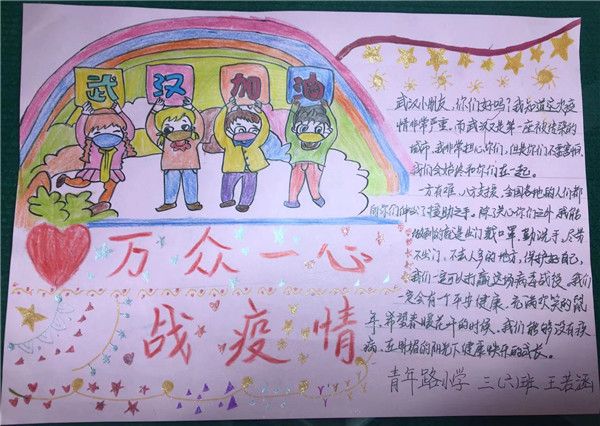 武汉加油
万众一心
战疫情
武汉小朋友,你们好吗?我知道这次疫
情非常严重,而武汉又是第一座被传染的
城市,我非常担心你们,但是你们不要害怕,
我们会始终和你们在一起。
一方有难,八方支援,全国各地的人们都
向你们伸出了援助之手。除了关心你们之外,我能
做到的就是出门戴口罩,勤洗手,尽量
不出门,不去人多的地方,保护好自己,
我们一定可以打赢这场病毒战役,我们
一定会有一个平安健康,充满欢笑的鼠
年,希望春暖花开的时候,我们能够没有疾
病,在明媚的阳光下健康快乐的成长。
青年路小学 三(六)班 王若涵